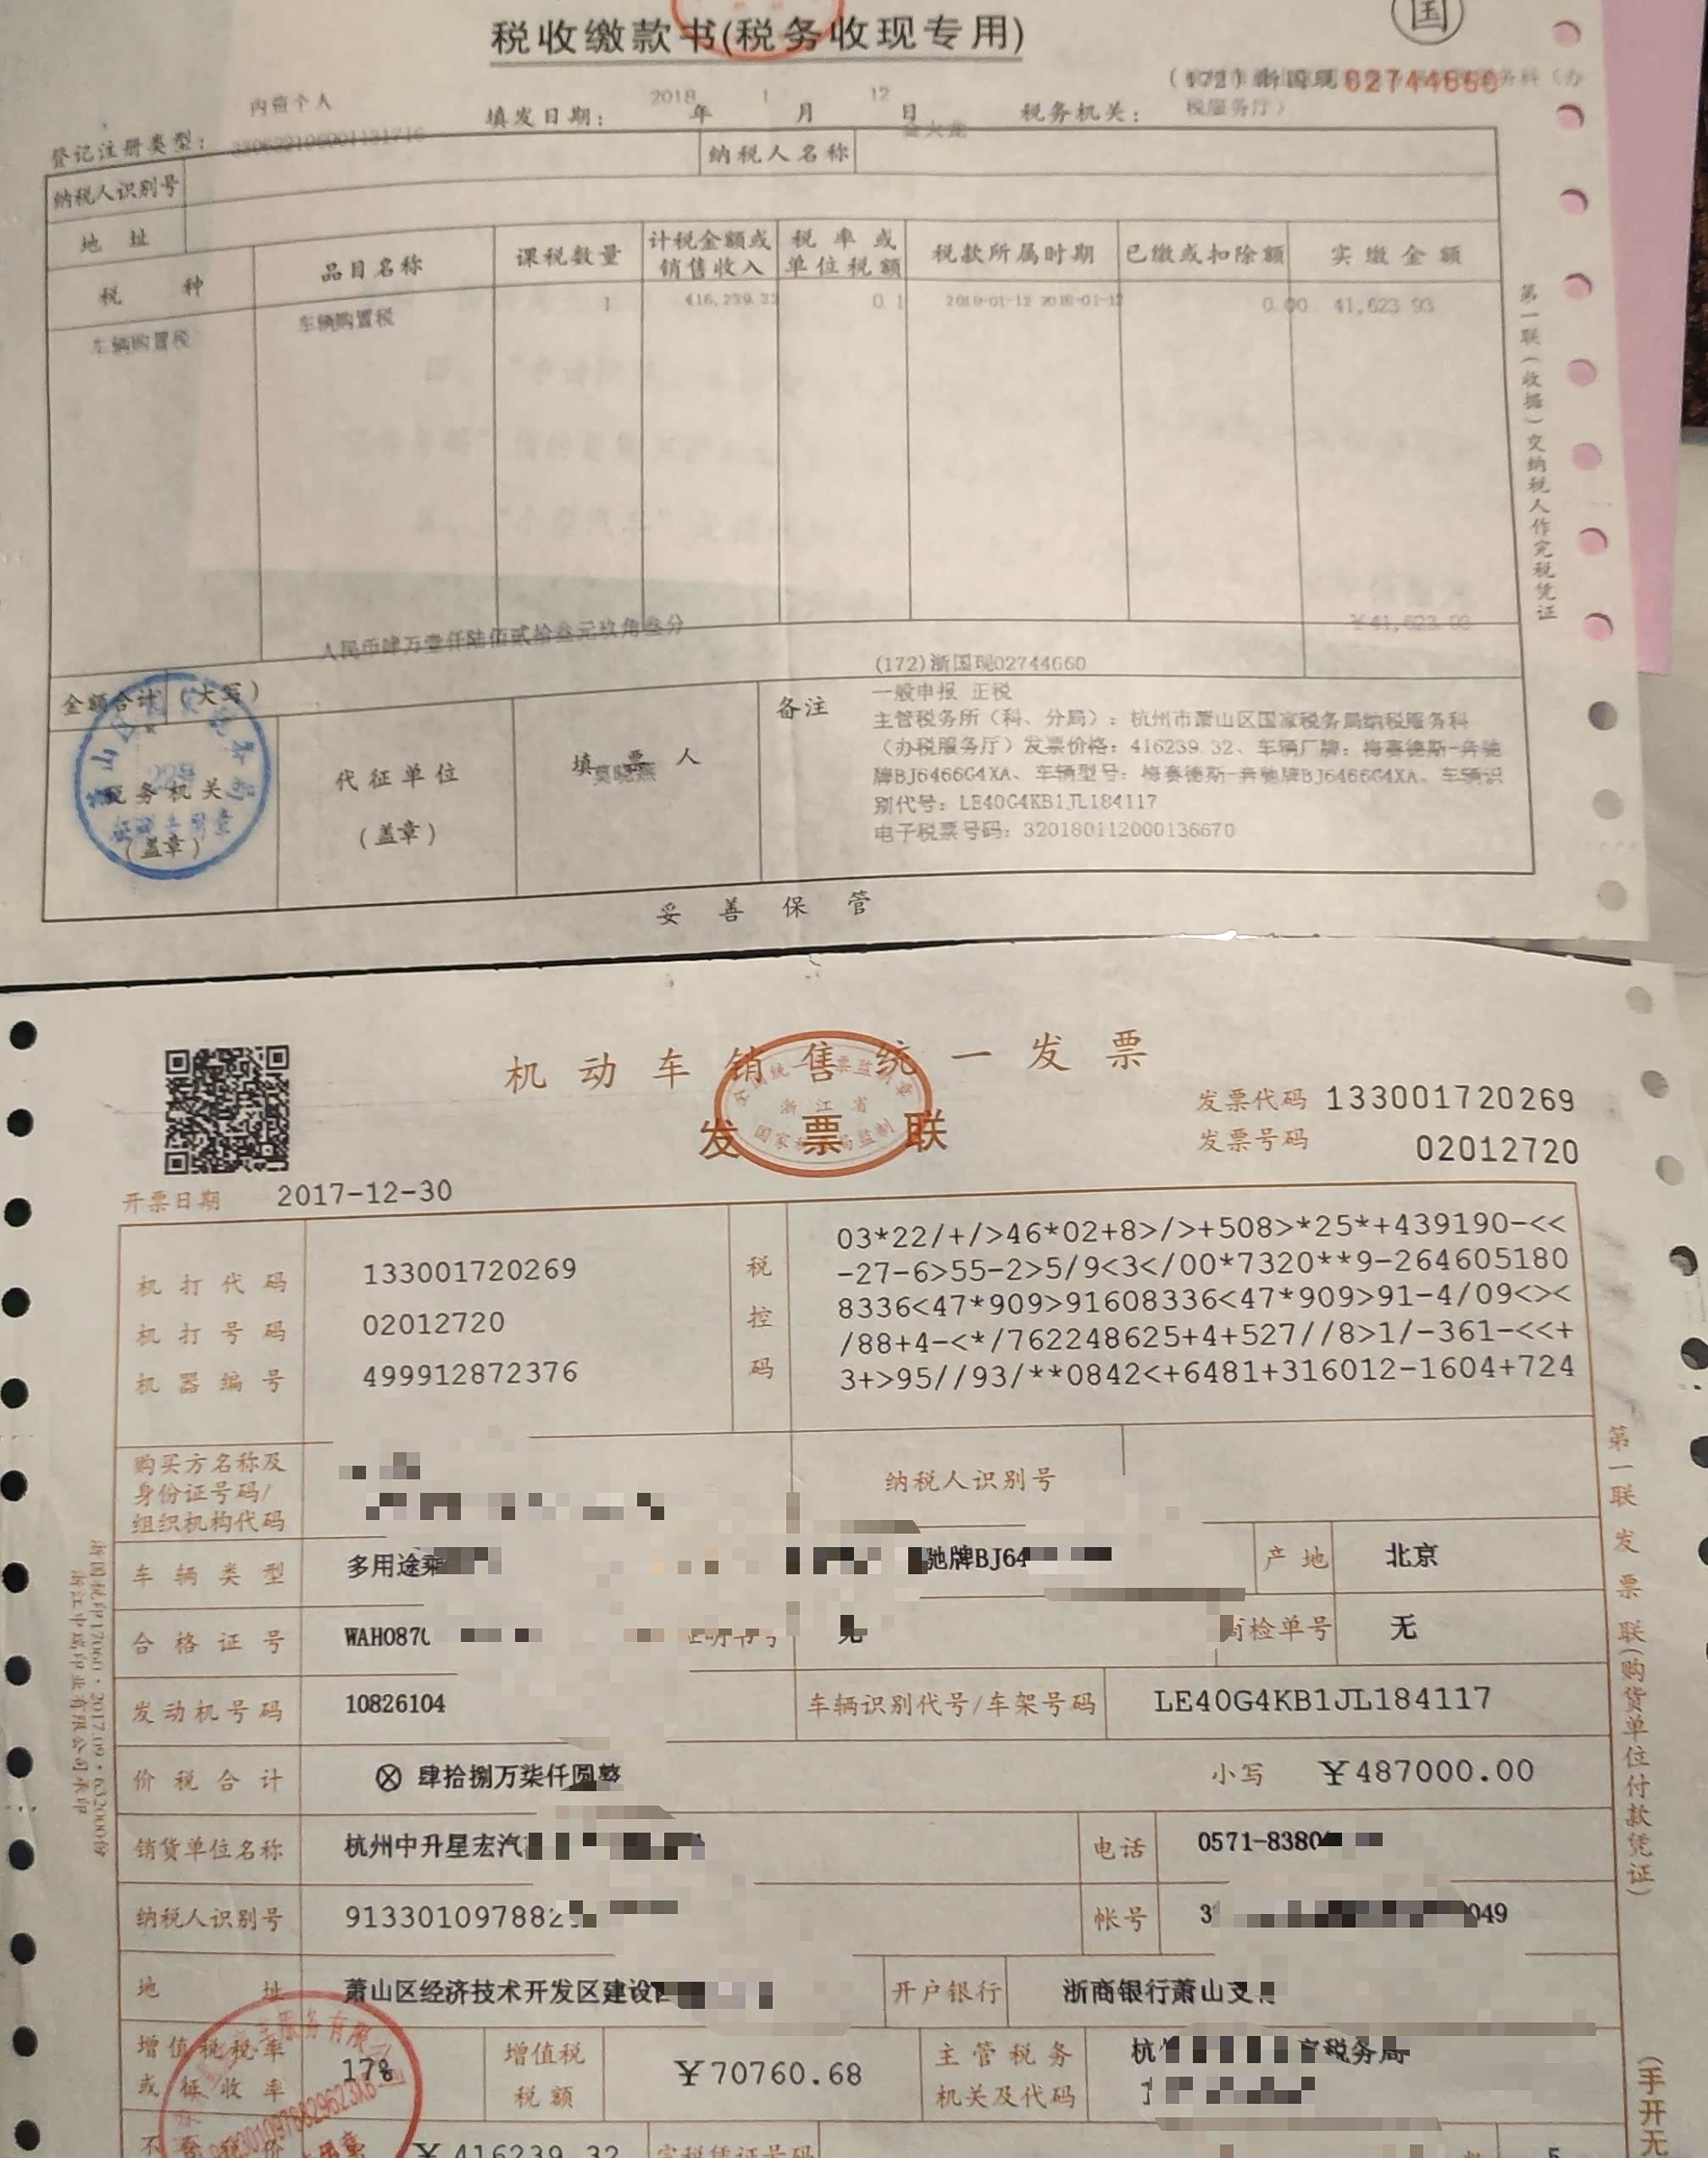 税收缴款书(税务收现专用)
国
(172)浙国现02744660
税服务厅）
内资个人
登记注册类型：
填发日期： 2018 年 1 月 12 日
税务机关：
纳税人识别号
纳税人名称
地 址
税 种
品目名称
课税数量
计税金额或
销售收入
税 率 或
单位税额
税款所属时期
已缴或扣除额
实缴金额
车辆购置税
车辆购置税
1
416,239.32
0.1
0.00
41,623.93
第一联（收据）交纳税人作完税凭证
人民币肆万壹仟陆佰贰拾叁元玖角叁分
￥41,623.93
金额合计（大写）
税务机关
（盖章）
代征单位
（盖章）
填 票 人
备注
(172)浙国现02744660
一般申报 正税
主管税务所（科、分局）：杭州市萧山区国家税务局纳税服务科
（办税服务厅）发票价格：416239.32、车辆厂牌：梅赛德斯-奔驰
牌BJ6466G4XA、车辆型号：梅赛德斯-奔驰牌BJ6466G4XA、车辆识
别代号：LE40G4KB1JL184117
电子税票号码：320180112000136670
妥 善 保 管
机动车销售统一发票
发票联
浙江省
发票代码 133001720269
发票号码 02012720
开票日期 2017-12-30
机打代码 133001720269
机打号码 02012720
机器编号 499912872376
税控码
03*22/+/>46*02+8>/>+508>*25*+439190-<<
-27-6>55-2>5/9<3</00*7320**9-264605180
8336<47*909>91608336<47*909>91-4/09<><
/88+4-<*/762248625+4+527//8>1/-361-<<+
3+>95//93/**0842<+6481+316012-1604+724
购买方名称及
身份证号码/
组织机构代码
纳税人识别号
车辆类型 多用途乘
驰牌BJ64
产地 北京
合格证号 WAH087
无
商检单号 无
发动机号码 10826104
车辆识别代号/车架号码 LE40G4KB1JL184117
价税合计 ⊗ 肆拾捌万柒仟圆整 小写 ￥487000.00
销货单位名称 杭州中升星宏汽
电话 0571-8380
纳税人识别号 913301097882
帐号 3 049
地 址 萧山区经济技术开发区建设
开户银行 浙商银行萧山支
增值税税率
或征收率
17%
增值税
税额
￥70760.68
主管税务
机关及代码
杭 税务局
不含税价 ￥416239.32
完税凭证号码
5
第一联 发票联（购货单位付款凭证）
（手开无